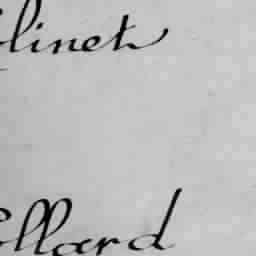 linet
llard